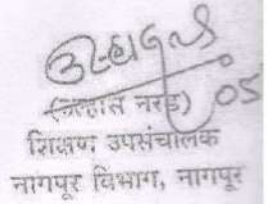 05
(उल्हास नरड)
शिक्षण उपसंचालक
नागपूर विभाग, नागपूर